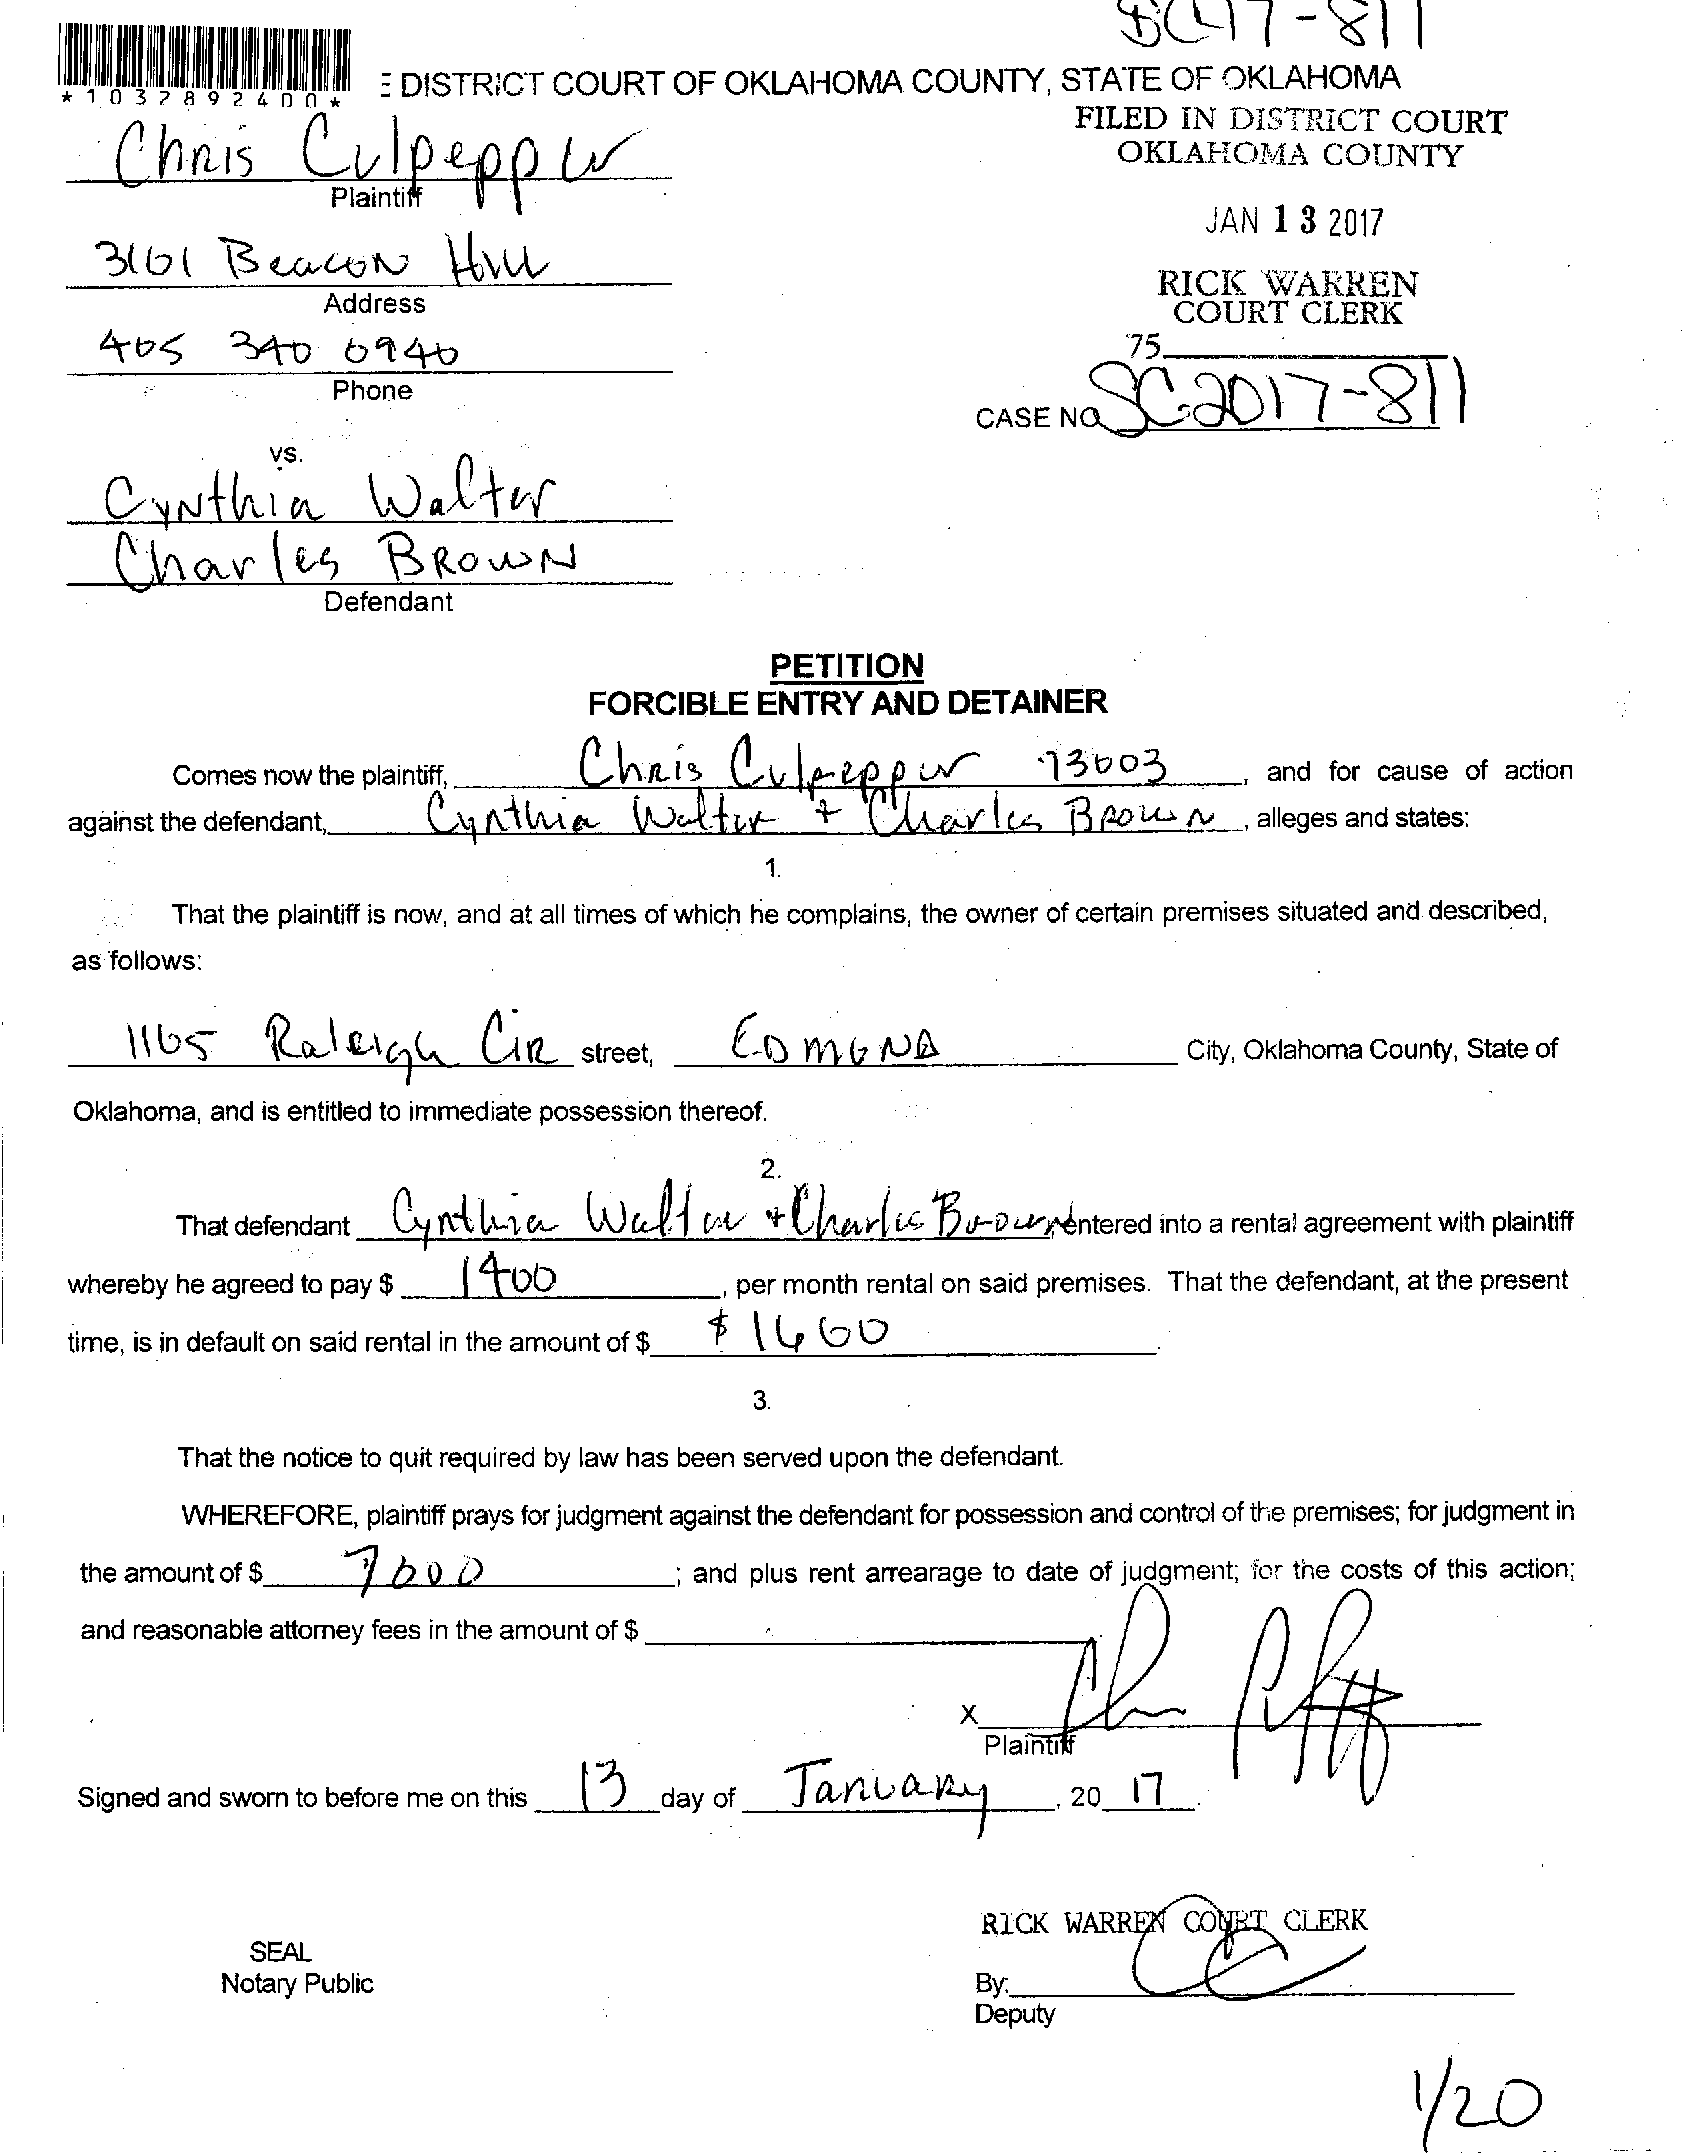 SC17-811
*1037892400*
DISTRICT COURT OF OKLAHOMA COUNTY, STATE OF OKLAHOMA
FILED IN DISTRICT COURT
OKLAHOMA COUNTY
Chris Culpepper
Plaintiff
JAN 13 2017
3161 Beacon Hill
Address
RICK WARREN
COURT CLERK
405 340 0940
75
Phone
CASE NO. SC-2017-811
vs.
Cynthia Walter
Charles Brown
Defendant
PETITION
FORCIBLE ENTRY AND DETAINER
Comes now the plaintiff, Chris Culpepper 73003, and for cause of action
against the defendant, Cynthia Walter + Charles Brown, alleges and states:
1.
That the plaintiff is now, and at all times of which he complains, the owner of certain premises situated and described,
as follows:
1165 Raleigh Cir street, Edmond City, Oklahoma County, State of
Oklahoma, and is entitled to immediate possession thereof.
2.
That defendant Cynthia Walter + Charles Brown entered into a rental agreement with plaintiff
whereby he agreed to pay $ 1400, per month rental on said premises. That the defendant, at the present
time, is in default on said rental in the amount of $ $
3.
That the notice to quit required by law has been served upon the defendant.
WHEREFORE, plaintiff prays for judgment against the defendant for possession and control of the premises; for judgment in
the amount of $ ; and plus rent arrearage to date of judgment; for the costs of this action;
and reasonable attorney fees in the amount of $
X
Plaintiff
Signed and sworn to before me on this 13 day of January, 20 17.
RICK WARREN COURT CLERK
SEAL
Notary Public
By:
Deputy
1/20